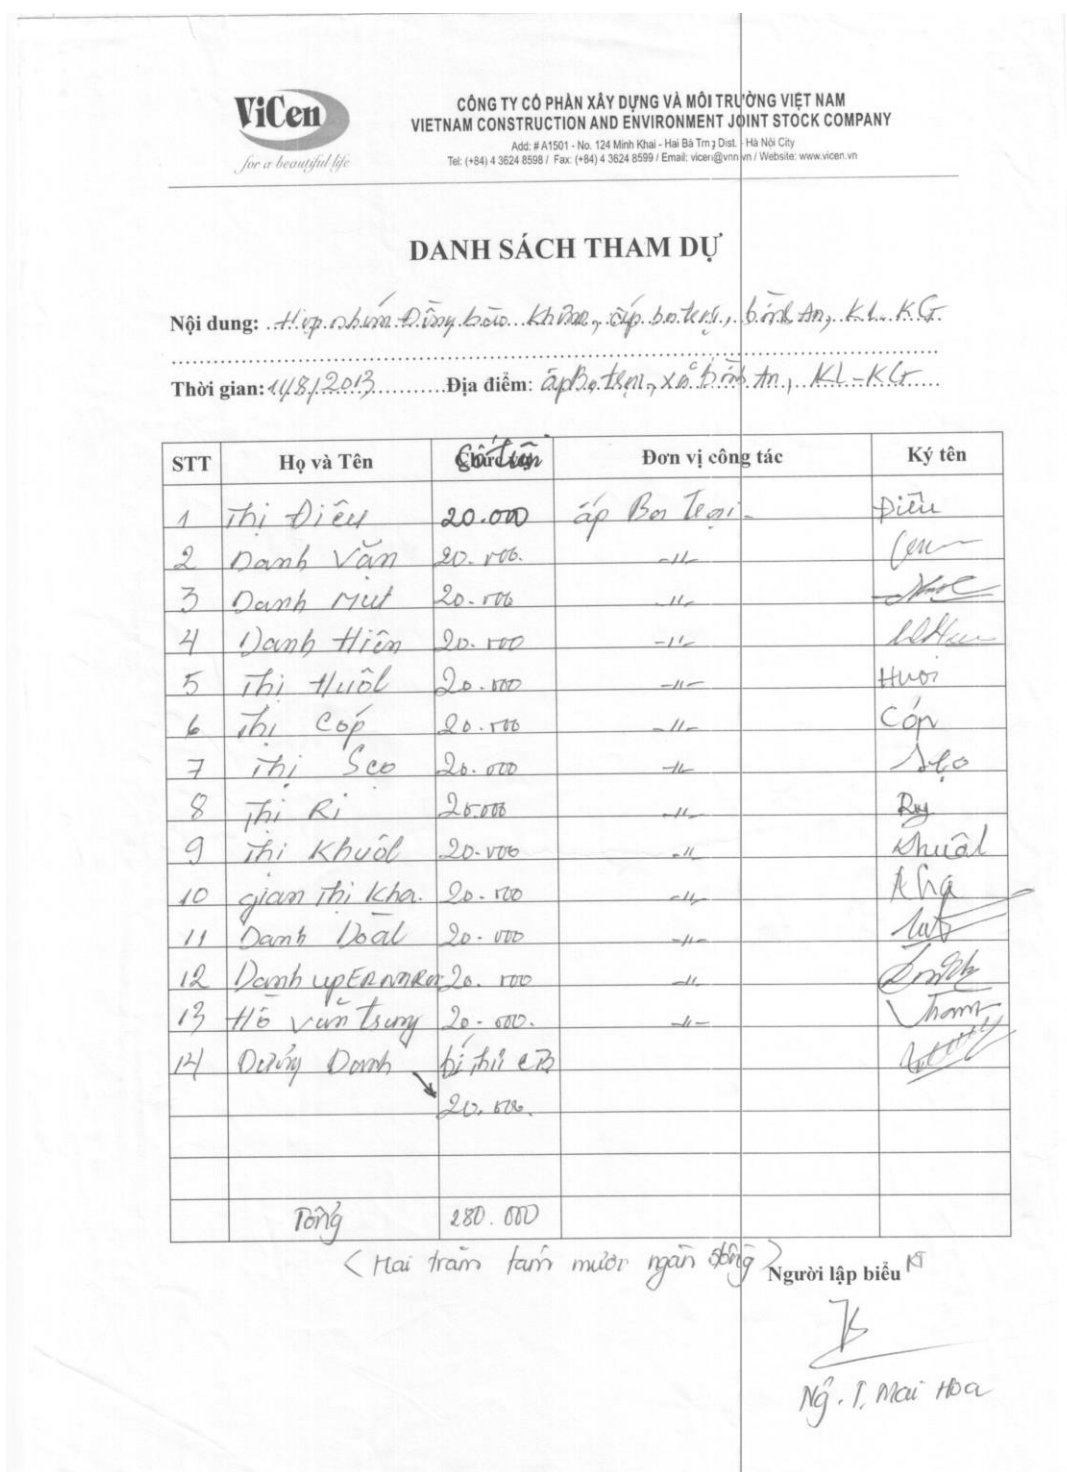 ViCen
for a beautiful life
CÔNG TY CỔ PHẦN XÂY DỰNG VÀ MÔI TRƯỜNG VIỆT NAM
VIETNAM CONSTRUCTION AND ENVIRONMENT JOINT STOCK COMPANY
Add: # A1501 - No. 124 Minh Khai - Hai Bà Trng Dist. - Hà Nội City
Tel: (+84) 4 3624 8598 / Fax: (+84) 4 3624 8599 / Email: vicen@vnn.vn / Website: www.vicen.vn
DANH SÁCH THAM DỰ
Nội dung: Họp nhóm Đồng bào Khơme, ấp ba trại, bình An, KL-KG
Thời gian: 11/8/2013 Địa điểm: ấp Ba trại, xã bình An, KL-KG
STT Họ và Tên Đơn vị công tác Ký tên
1 Thị Điều 20.000 ấp Ba Trại Điều
2 Danh Văn 20.000. -//-
3 Danh Mut 20.000 -//-
4 Danh Hiên 20.000 -//-
5 Thị Huôl 20.000 -//- Huoi
6 Thị Cóp 20.000 -//- Cóp
7 Thị Sẹo 20.000 -//- Sẹo
8 Thị Ri 20.000 -//- Ry
9 Thi Khuôl 20.000 -//- Khuâl
10 gian Thi Kha. 20.000 -//- Kha
11 Danh 20.000 -//-
12 Danh 20.000 -//-
13 Hồ văn trung 20.000. -//-
14 Danh bí thư CB
20.000.
Tổng 280.000
(Hai trăm tám mươi ngàn đồng)
Người lập biểu
Ng. T. Mai Hoa